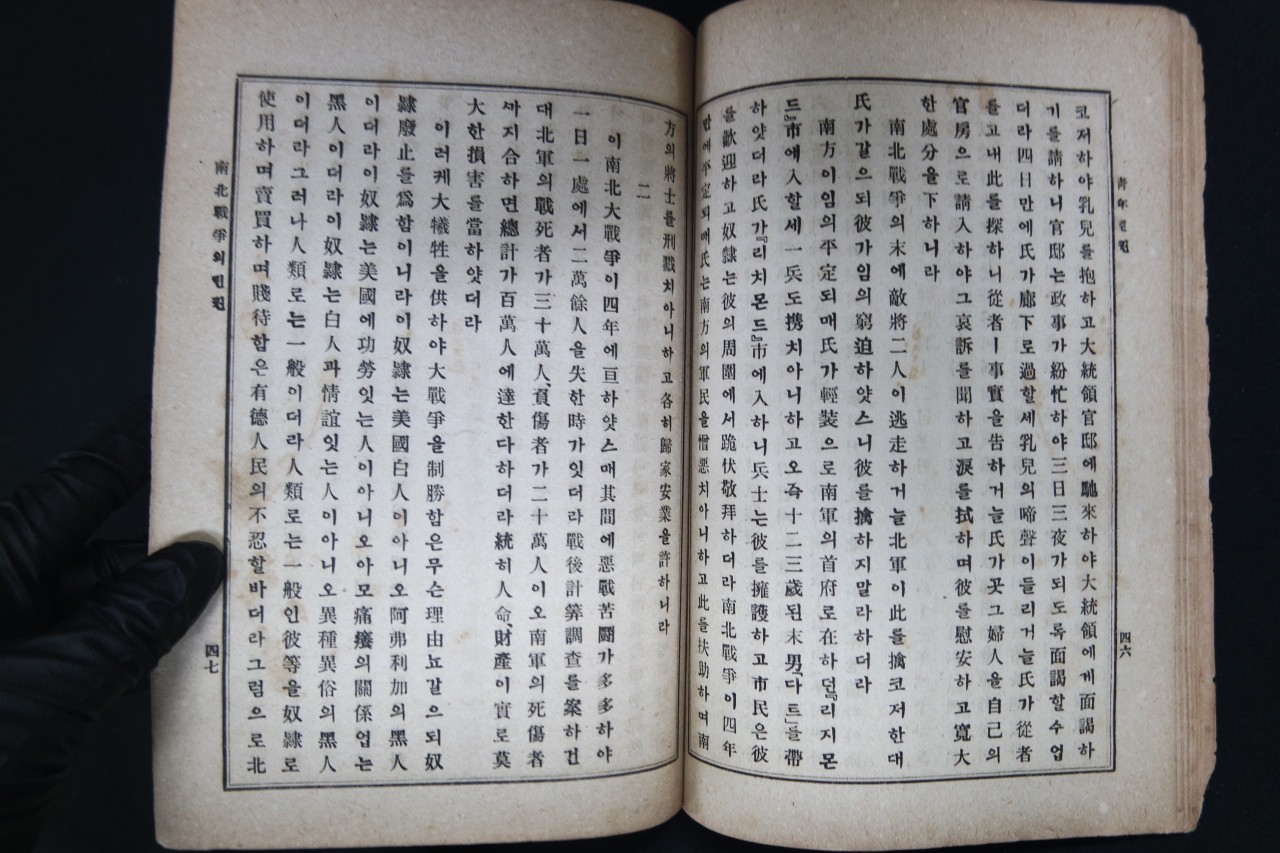 靑年린컨
四六
코저하야乳兒를抱하고大統領官邸에馳來하야大統領에게面謁하
기를請하니官邸는政事가紛忙하야三日三夜가되도록面謁할수업
더라四日만에氏가廊下로過할세乳兒의啼聲이들리거늘氏가從者
를고내此를探하니從者ㅣ事實을告하거늘氏가곳그婦人을自己의
官房으로請入하야그哀訴를聞하고淚를拭하며彼를慰安하고寬大
한處分을下하니라
南北戰爭의末에敵將二人이逃走하거늘北軍이此를擒코저한대
氏가갈으되彼가임의窮迫하얏스니彼를擒하지말라하더라
南方이임의平定되매氏가輕裝으로南軍의首府로在하던『리치몬
드』市에入할세一兵도携치아니하고오즉十二三歲된末男「다드」를帶
하얏더라氏가『리치몬드』市에入하니兵士는彼를擁護하고市民은彼
를歡迎하고奴隸는彼의周圍에서跪伏敬拜하더라南北戰爭이四年
만에平定되매氏는南方의軍民을憎惡치아니하고此를扶助하며南
方의將士를刑戮치아니하고各히歸家安業을許하니라
二
이南北大戰爭이四年에亘하얏스매其間에惡戰苦鬪가多多하야
一日一處에서二萬餘人을失한時가잇더라戰後計筭調查를案하건
대北軍의戰死者가三十萬人、負傷者가二十萬人이오南軍의死傷者
까지合하면總計가百萬人에達한다하더라統히人命、財產이實로莫
大한損害를當하얏더라
이러케大犧牲을供하야大戰爭을制勝함은무슨理由뇨갈으되奴
隸廢止를爲함이니라이奴隸는美國白人이아니오阿弗利加의黑人
이더라이奴隸는美國에功勞잇는人이아니오아모痛癢의關係업는
黑人이더라이奴隸는白人과情誼잇는人이아니오異種異俗의黑人
이더라그러나人類로는一般이더라人類로는一般인彼等을奴隸로
使用하며賣買하며賤待함은有德人民의不忍할바더라그럼으로北
南北戰爭의린컨
四七